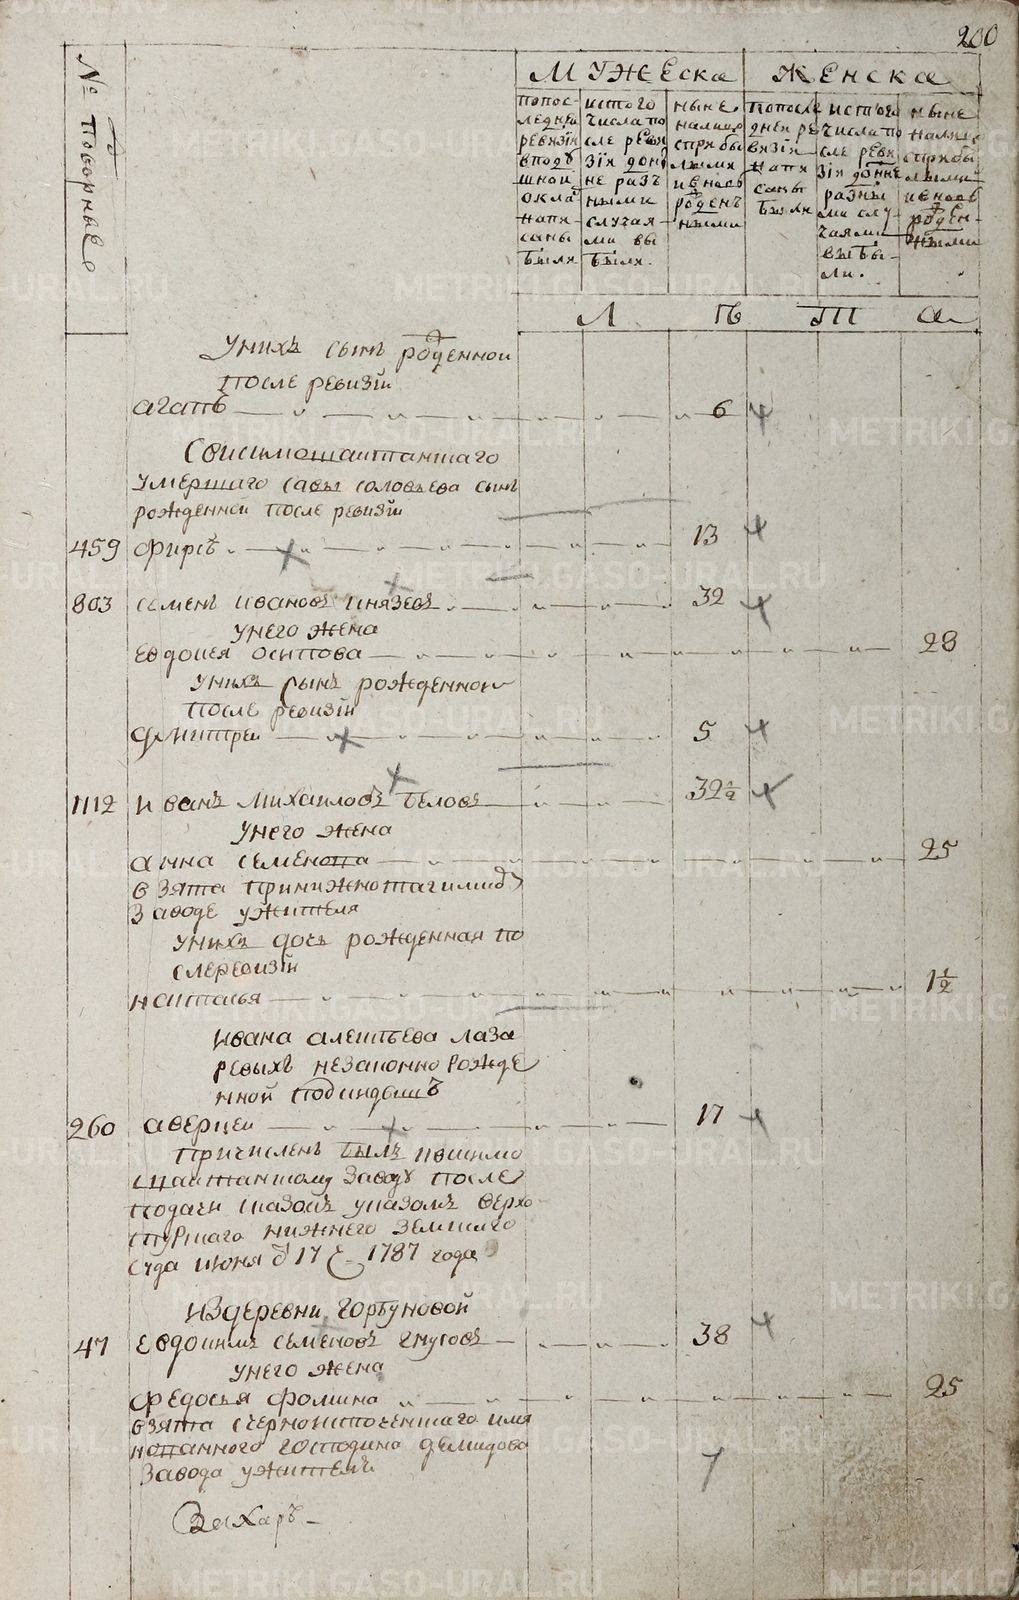 200
№ подворные
МУЖЕска
ЖЕнска
попос-
ледней
ревизiи
вподу
шной
окла
напи
саны
были
истого
числа по
сле реви
зiи доны
не разъ
ными
случая
ми вы
были.
ныне
налицо
сприбы
лыми
и вновь
рожден
ными
попосле
дней ре
визiи
напи
саны
были
истого
числа по
сле реви
зiи донне
разны
ми слу-
чаями
выбы-
ли.
ныне
налицо
сприбы
лыми
и вновь
рожден-
ными
Л ѣ т а
унихъ сынъ рожденной
после ревизiи
агапъ 6
Свисимошайтанскаго
умершаго савы соловьева сынъ
рожденной после ревизiи
459 фирсъ 13
803 семенъ ивановъ князевъ 32
унего жена
евдокея осипова 28
унихъ сынъ рожденной
после ревизiи
дмитрей 5
1112 иванъ михаиловъ беловъ 32 1/2
унего жена
анна семенова 25
взята принижнотагилскомъ
заводе ужителя
унихъ дочь рожденная по
слеревизiи
наталья 1 1/2
ивана алентьева лаза
ревыхъ незаконно рожде
нной подкидышъ
260 аверкеи 17
причисленъ былъ квисимо
шайтанскому заводу после
подачи сказокъ указомъ верхо
турскаго нижнего земскаго
суда июня 17 1787 года
издеревни горбуновой
47 евдокимъ семеновъ гнусовъ 38
унего жена
федосья фомина 25
взята счерноисточенскаго имя
нованного господина демидова
завода ужителя
Захаръ
METRIKI.GASO-URAL.RU